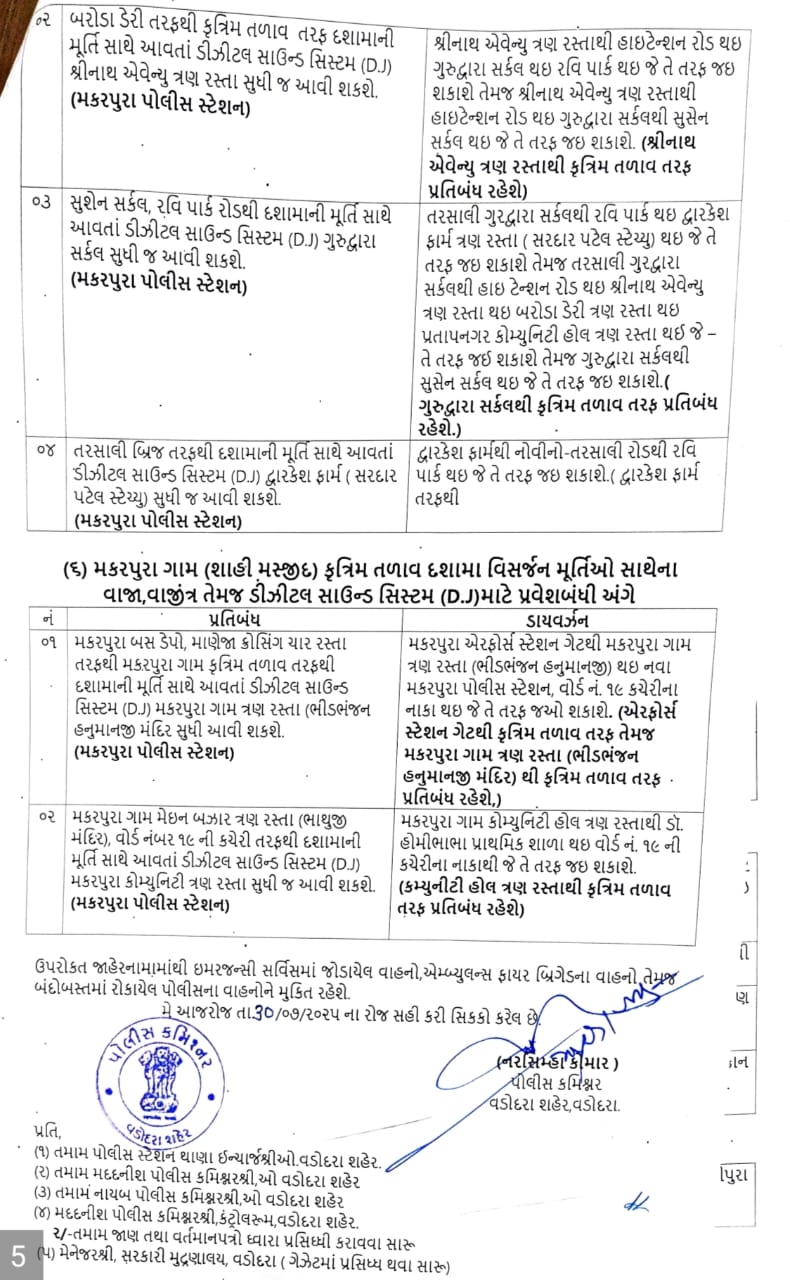 ૦૨
બરોડા ડેરી તરફથી કૃત્રિમ તળાવ તરફ દશામાની
મૂર્તિ સાથે આવતાં ડીઝીટલ સાઉન્ડ સિસ્ટમ (D.J)
શ્રીનાથ એવેન્યુ ત્રણ રસ્તા સુધી જ આવી શકશે.
(મકરપુરા પોલીસ સ્ટેશન)
શ્રીનાથ એવેન્યુ ત્રણ રસ્તાથી હાઇટેન્શન રોડ થઇ
ગુરુદ્વારા સર્કલ થઇ રવિ પાર્ક થઇ જે તે તરફ જઇ
શકાશે તેમજ શ્રીનાથ એવેન્યુ ત્રણ રસ્તાથી
હાઇટેન્શન રોડ થઇ ગુરુદ્વારા સર્કલથી સુસેન
સર્કલ થઇ જે તે તરફ જઇ શકાશે. (શ્રીનાથ
એવેન્યુ ત્રણ રસ્તાથી કૃત્રિમ તળાવ તરફ
પ્રતિબંધ રહેશે)
૦૩
સુશેન સર્કલ, રવિ પાર્ક રોડથી દશામાની મૂર્તિ સાથે
આવતાં ડીઝીટલ સાઉન્ડ સિસ્ટમ (D.J) ગુરુદ્વારા
સર્કલ સુધી જ આવી શકશે.
(મકરપુરા પોલીસ સ્ટેશન)
તરસાલી ગુરદ્વારા સર્કલથી રવિ પાર્ક થઇ દ્વારકેશ
ફાર્મ ત્રણ રસ્તા ( સરદાર પટેલ સ્ટેચ્યુ) થઇ જે તે
તરફ જઇ શકાશે તેમજ તરસાલી ગુરદ્વારા
સર્કલથી હાઇ ટેન્શન રોડ થઇ શ્રીનાથ એવેન્યુ
ત્રણ રસ્તા થઇ બરોડા ડેરી ત્રણ રસ્તા થઇ
પ્રતાપનગર કોમ્યુનિટી હોલ ત્રણ રસ્તા થઈ જે –
તે તરફ જઈ શકાશે તેમજ ગુરુદ્વારા સર્કલથી
સુસેન સર્કલ થઇ જે તે તરફ જઇ શકાશે.(
ગુરુદ્વારા સર્કલથી કૃત્રિમ તળાવ તરફ પ્રતિબંધ
રહેશે.)
૦૪
તરસાલી બ્રિજ તરફથી દશામાની મૂર્તિ સાથે આવતાં
ડીઝીટલ સાઉન્ડ સિસ્ટમ (D.J) દ્વારકેશ ફાર્મ ( સરદાર
પટેલ સ્ટેચ્યુ) સુધી જ આવી શકશે.
(મકરપુરા પોલીસ સ્ટેશન)
દ્વારકેશ ફાર્મથી નોવીનો-તરસાલી રોડથી રવિ
પાર્ક થઇ જે તે તરફ જઇ શકાશે.( દ્વારકેશ ફાર્મ
તરફથી
(૬) મકરપુરા ગામ (શાહી મસ્જીદ) કૃત્રિમ તળાવ દશામા વિસર્જન મૂર્તિઓ સાથેના
વાજા,વાજીંત્ર તેમજ ડીઝીટલ સાઉન્ડ સિસ્ટમ (D.J)માટે પ્રવેશબંધી અંગે
નં
પ્રતિબંધ
ડાયવર્ઝન
૦૧
મકરપુરા બસ ડેપો, માણેજા ક્રોસિંગ ચાર રસ્તા
તરફથી મકરપુરા ગામ કૃત્રિમ તળાવ તરફથી
દશામાની મૂર્તિ સાથે આવતાં ડીઝીટલ સાઉન્ડ
સિસ્ટમ (D.J) મકરપુરા ગામ ત્રણ રસ્તા (ભીડભંજન
હનુમાનજી મંદિર સુધી આવી શકશે.
(મકરપુરા પોલીસ સ્ટેશન)
મકરપુરા એરફોર્સ સ્ટેશન ગેટથી મકરપુરા ગામ
ત્રણ રસ્તા (ભીડભંજન હનુમાનજી) થઇ નવા
મકરપુરા પોલીસ સ્ટેશન, વોર્ડ નં. ૧૯ કચેરીના
નાકા થઇ જે તે તરફ જઓ શકાશે. (એરફોર્સ
સ્ટેશન ગેટથી કૃત્રિમ તળાવ તરફ તેમજ
મકરપુરા ગામ ત્રણ રસ્તા (ભીડભંજન
હનુમાનજી મંદિર) થી કૃત્રિમ તળાવ તરફ
પ્રતિબંધ રહેશે,)
૦૨
મકરપુરા ગામ મેઇન બઝાર ત્રણ રસ્તા (ભાથુજી
મંદિર), વોર્ડ નંબર ૧૯ ની કચેરી તરફથી દશામાની
મૂર્તિ સાથે આવતાં ડીઝીટલ સાઉન્ડ સિસ્ટમ (D.J)
મકરપુરા કોમ્યુનિટી ત્રણ રસ્તા સુધી જ આવી શકશે.
(મકરપુરા પોલીસ સ્ટેશન)
મકરપુરા ગામ કોમ્યુનિટી હોલ ત્રણ રસ્તાથી ડૉ.
હોમીભાભા પ્રાથમિક શાળા થઇ વોર્ડ નં. ૧૯ ની
કચેરીના નાકાથી જે તે તરફ જઇ શકાશે.
(કમ્યુનીટી હોલ ત્રણ રસ્તાથી કૃત્રિમ તળાવ
તરફ પ્રતિબંધ રહેશે)
ઉપરોકત જાહેરનામામાંથી ઇમરજન્સી સર્વિસમાં જોડાયેલ વાહનો,એમ્બ્યુલન્સ ફાયર બ્રિગેડના વાહનો તેમજ
બંદોબસ્તમાં રોકાયેલ પોલીસના વાહનોને મુકિત રહેશે.
મે આજરોજ તા.૩૦/૦૭/૨૦૨૫ ના રોજ સહી કરી સિકકો કરેલ છે.
પોલીસ કમિશ્નર
વડોદરા શહેર
(નરસિમ્હા કોમાર )
પોલીસ કમિશ્નર
વડોદરા શહેર,વડોદરા.
પ્રતિ,
(૧) તમામ પોલીસ સ્ટેશન થાણા ઈન્ચાર્જશ્રીઓ.વડોદરા શહેર.
(૨) તમામ મદદનીશ પોલીસ કમિશ્નરશ્રી,ઓ વડોદરા શહેર
(૩) તમામં નાયબ પોલીસ કમિશ્નરશ્રી,ઓ વડોદરા શહેર
(૪) મદદનીશ પોલીસ કમિશ્નરશ્રી,કંટ્રોલરૂમ,વડોદરા શહેર.
૨/-તમામ જાણ તથા વર્તમાનપત્રો ધ્વારા પ્રસિધ્ધી કરાવવા સારૂ
(૫) મેનેજરશ્રી, સરકારી મુદ્રણાલય, વડોદરા ( ગેઝેટમાં પ્રસિધ્ધ થવા સારૂ)
5